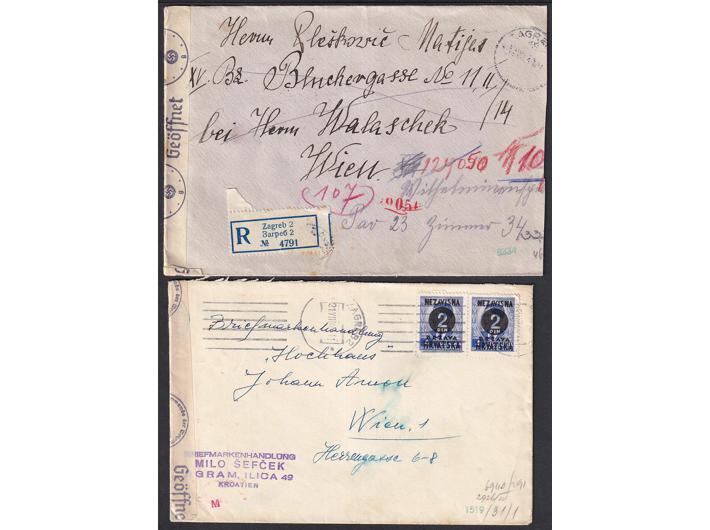 Herrn Pleškovič Matijas
XV. Bz. Bluchergasse No 11, II/14
bei Herrn Walaschek
Wien
Geöffnet
107
Pav 23 Zimmer 34
R
Zagreb 2
Загреб 2
№ 4791
8334
NEZAVISNA
2
DIN
DRŽAVA
HRVATSKA
NEZAVISNA
2
DIN
DRŽAVA
HRVATSKA
Briefmarkenhandlung
"Hochhaus"
Johann Arnon
Wien, 1
Herrengasse 6-8
BRIEFMARKENHANDLUNG
MILO ŠEFČEK
GRAM, ILICA 49
KROATIEN
M
Geöffne
1519
/31/1